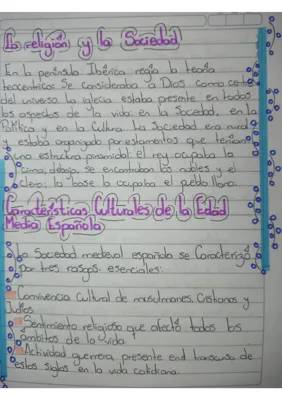 La religión y la Sociedad
En la península Ibérica regía la teoría
teocéntrica: Se consideraba a Dios como centro
del universo. La iglesia estaba presente en todos
los aspectos de la vida: en la Sociedad, en la
Política y en la Cultura. La Sociedad era rural
y estaba organizado por estamentos que tenían
una estructura piramidal: el rey ocupaba la
cima, debajo se encontraban los nobles y el
clero; la base la ocupaba el pueblo llano.
Características Culturales de la Edad
Media Española
La Sociedad medieval español se Caracterizó
por tres rasgos esenciales:
Convivencia Cultural de musulmanes, Cristianos y
Judíos
Sentimiento religioso que afectó todos los
ámbitos de la vida
Actividad guerrera, presente en el transcurso de
estos siglos en la vida cotidiana.